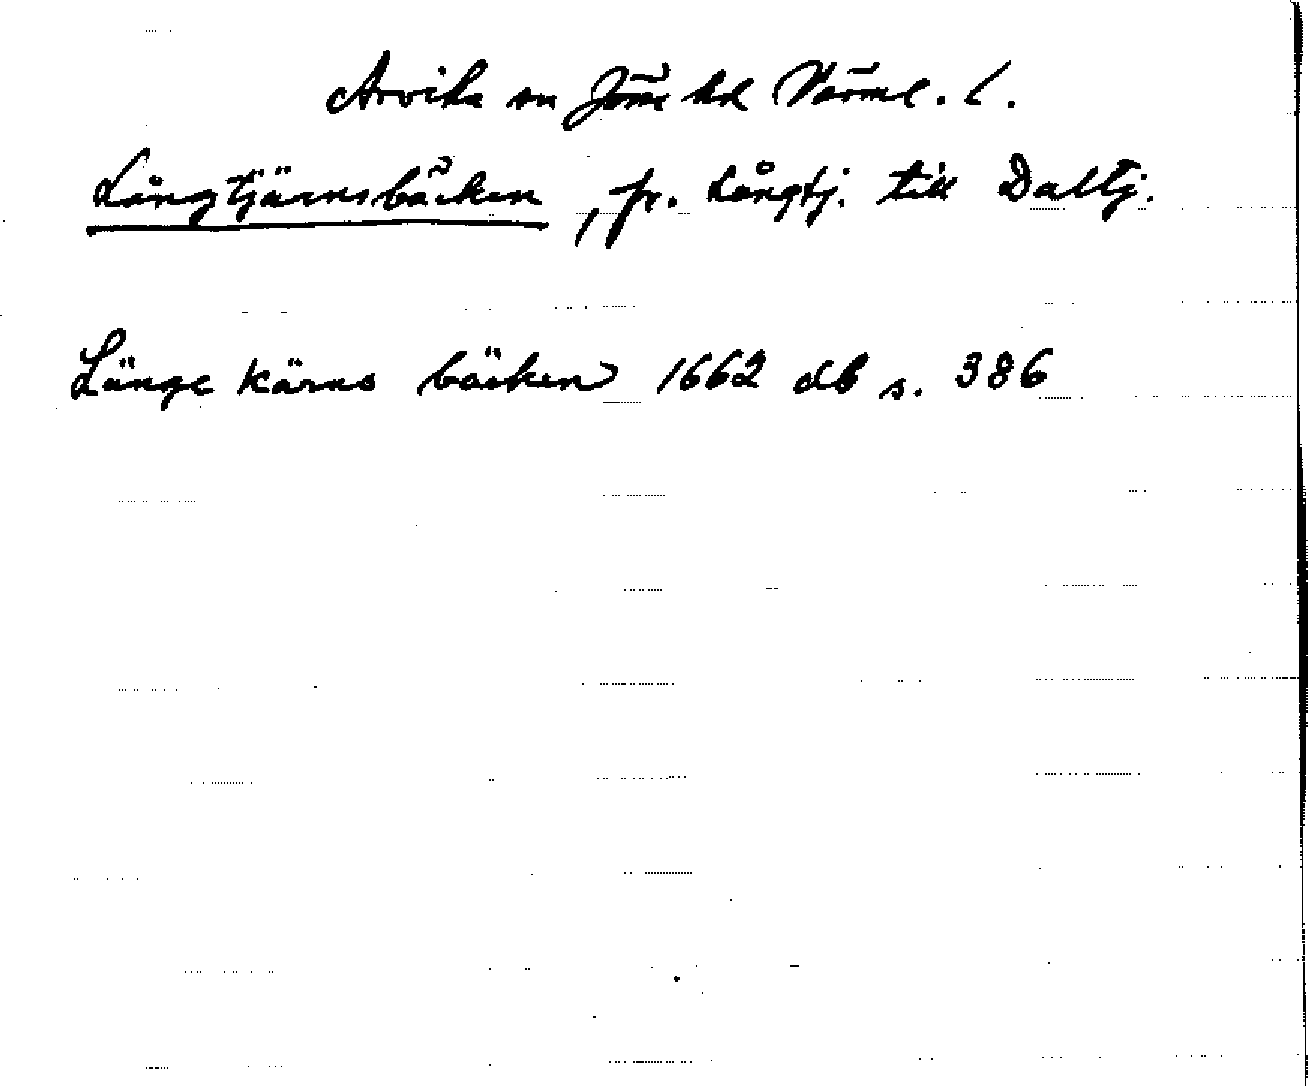 Arvika sn Jösse hd Värml. l.
Långtjärnsbäcken, fr. Långtj. till Daltj.
Länge kärns bäcken 1662 db s. 386